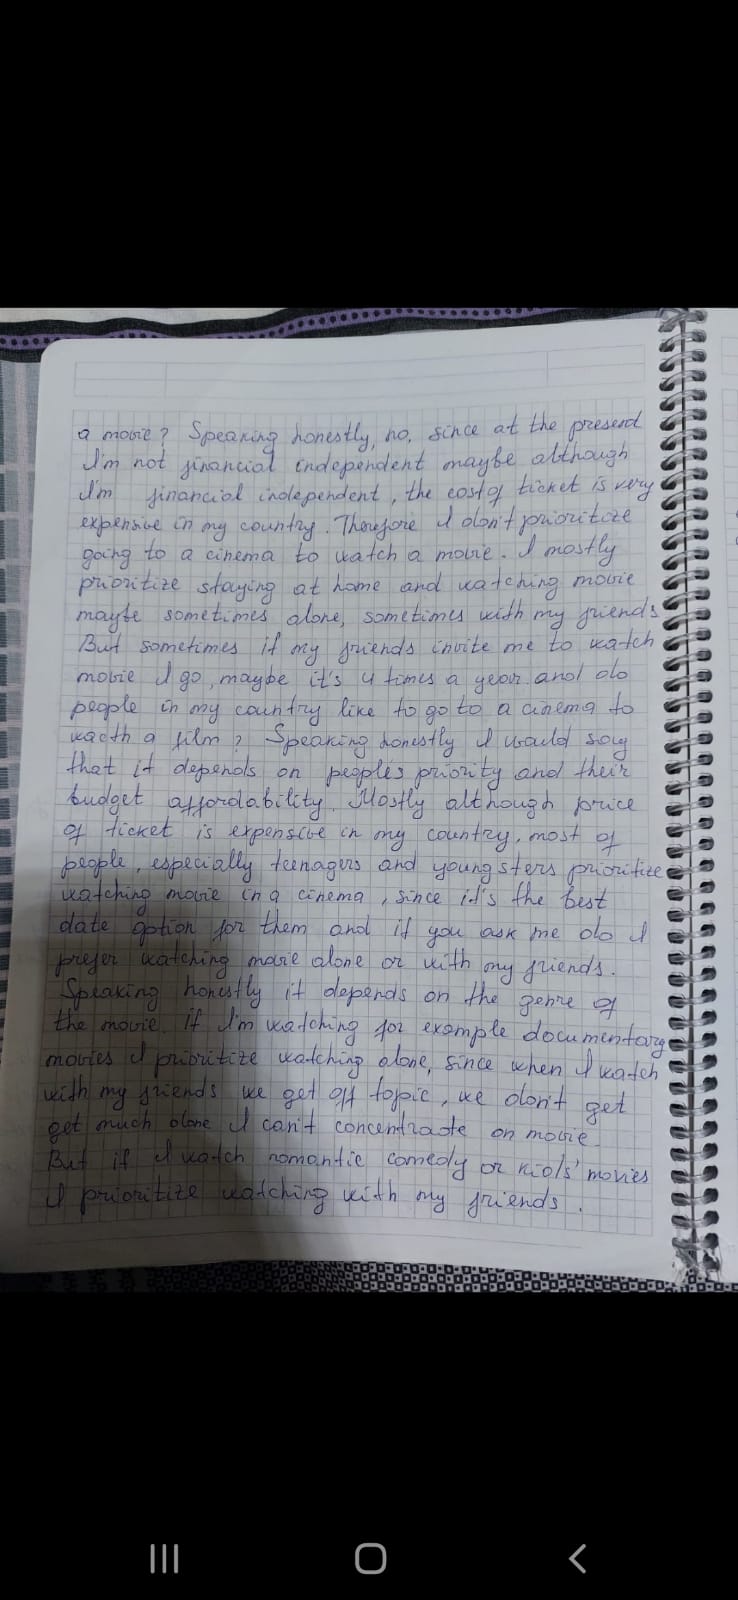 a movie? Speaking honestly, no, since at the present
I'm not financial independent maybe although
I'm financial independent, the cost of ticket is very
expensive in my country. Therefore I don't prioritize
going to a cinema to watch a movie. I mostly
prioritize staying at home and watching movie
maybe sometimes alone, sometimes with my friends
But sometimes if my friends invite me to watch
movie I go, maybe it's 4 times a year. and do
people in my country like to go to a cinema to
wacth a film? Speaking honestly I would say
that it depends on people's priority and their
budget affordability. Mostly although price
of ticket is expensive in my country, most of
people, especially teenagers and youngsters prioritize
watching movie in a cinema, since it's the best
date option for them and if you ask me do I
prefer watching movie alone or with my friends.
Speaking honestly it depends on the genre of
the movie. if I'm watching for example documentary
movies I prioritize watching alone, since when I watch
with my friends we get off topic, we don't get
get much done I can't concentrade on movie.
But if I watch romantic comedy or kids' movies
I prioritize watching with my friends.